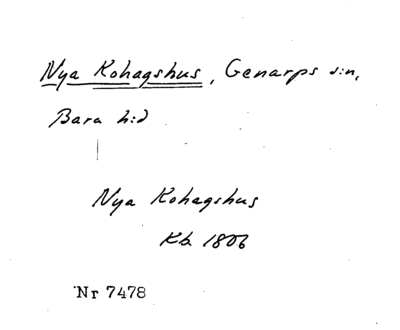 Nya Kohagshus, Genarps s:n,
Bara h:d
Nya Kohagshus
Kb 1806
Nr 7478